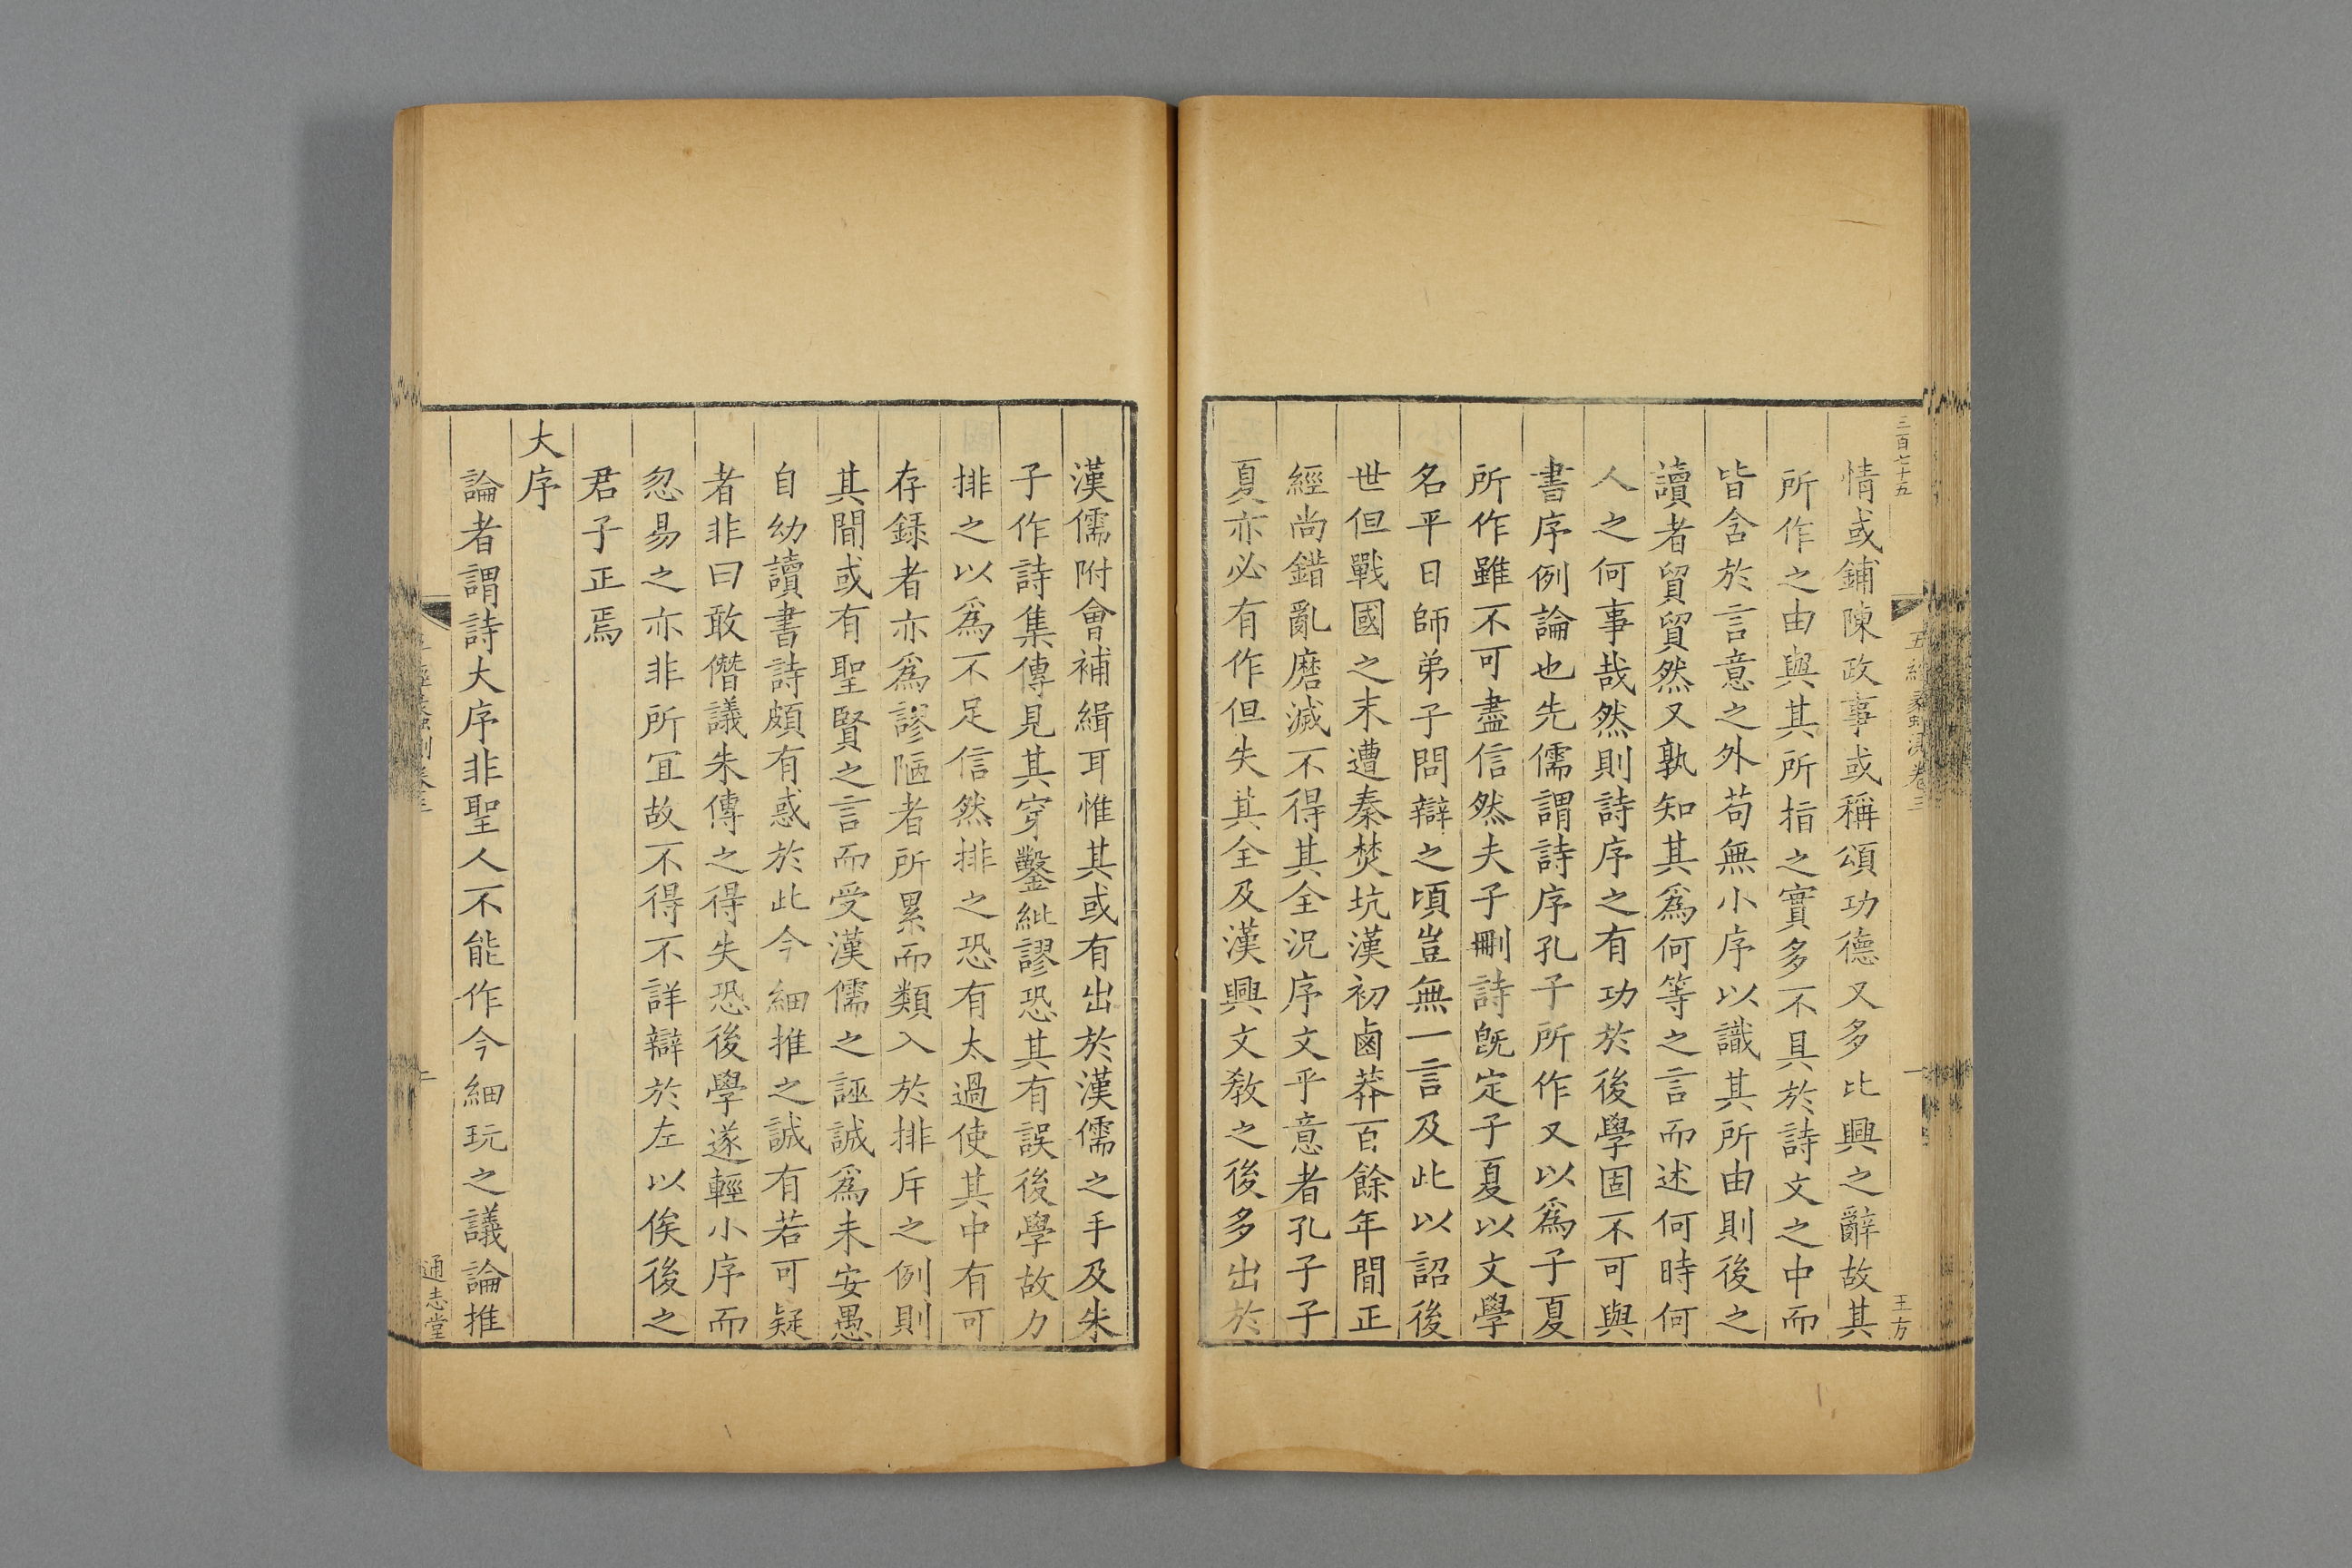 三百七十五
五經蠡測卷三
一
王方
情或鋪陳政事或稱頌功德又多比興之辭故其
所作之由與其所指之實多不具於詩文之中而
皆含於言意之外苟無小序以識其所由則後之
讀者貿貿然又孰知其爲何等之言而述何時何
人之何事哉然則詩序之有功於後學固不可與
書序例論也先儒謂詩序孔子所作又以爲子夏
所作雖不可盡信然夫子刪詩旣定子夏以文學
名平日師弟子問辯之頃豈無一言及此以詔後
世但戰國之末遭秦焚坑漢初鹵莽百餘年間正
經尚錯亂磨滅不得其全況序文乎意者孔子子
夏亦必有作但失其全及漢興文教之後多出於
漢儒附會補緝耳惟其或有出於漢儒之手及朱
子作詩集傳見其穿鑿紕謬恐其有誤後學故力
排之以爲不足信然排之恐有太過使其中有可
存録者亦爲謬陋者所累而類入於排斥之例則
其間或有聖賢之言而受漢儒之誣誠爲未安愚
自幼讀書詩頗有惑於此今細推之誠有若可疑
者非曰敢僭議朱傳之得失恐後學遂輕小序而
忽易之亦非所宜故不得不詳辯於左以俟後之
君子正焉
大序
論者謂詩大序非聖人不能作今細玩之議論推
通志堂